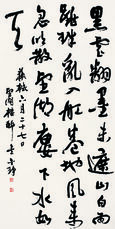 黑雲翻墨未遮山白雨
跳珠亂入船卷地風來
忽吹散望湖樓下水如
天
蘇軾六月二十七日